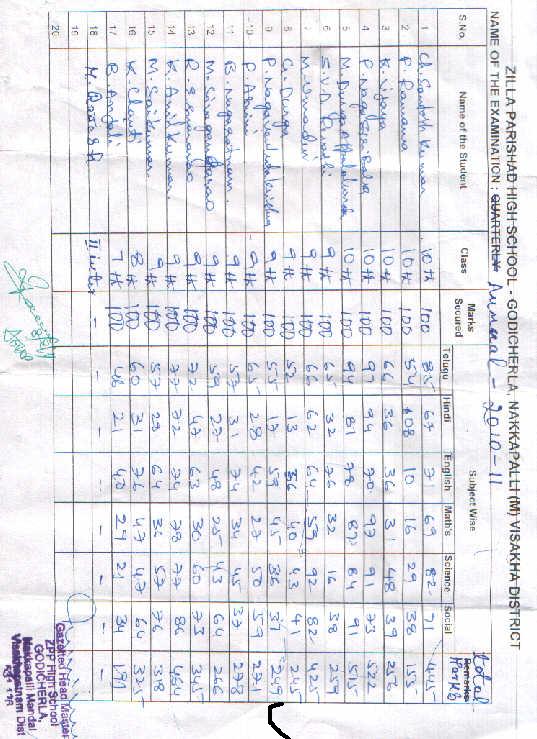 ZILLA PARISHAD HIGH SCHOOL - GODICHERLA, NAKKAPALLI (M) VISAKHA DISTRICT
NAME OF THE EXAMINATION : QUARTERLY Annual - 2010-11
S.No. Name of the Student Class Marks Secured Subject Wise Total Marks
Telugu Hindi English Maths Science Social Remarks
1 Ch. Santosh Kumar 10th 100 85 67 71 69 82 71 445
2 P. Ramana 10th 100 54 08 10 16 29 38 155
3 K. Vijaya 10th 100 66 36 36 31 48 39 256
4 P. Naga Sesi Rao 10th 100 97 94 70 97 91 73 522
5 M. Durga 10th 100 94 81 78 87 84 91 515
6 S.V.D. 9th 100 65 32 76 32 16 38 259
7 M. Umadevi 9th 100 66 62 64 59 92 82 425
8 Ch. Durga 9th 100 52 13 56 40 43 41 245
9 P. 9th 100 55 17 59 45 36 37 249
10 P. 9th 100 65 28 42 27 50 59 271
11 B. Nagaratnam 9th 100 57 31 74 34 45 37 278
12 M. Siva 9th 100 59 27 48 25 43 64 266
13 R. 9th 100 72 47 63 30 60 73 345
14 K. Anil Kumar 9th 100 77 72 74 78 77 86 464
15 M. Sai Kumar 9th 100 57 29 64 36 57 76 318
16 K. Chanti 8th 100 60 31 76 47 47 64 325
17 B. Anjali 7th 100 48 21 40 29 21 34 191
18 M. II inter - - - - - - -
19
20
Gazetted Head Master
ZPP High School
GODICHERLA,
Nakkapalli Mandal
Visakhapatnam Dist